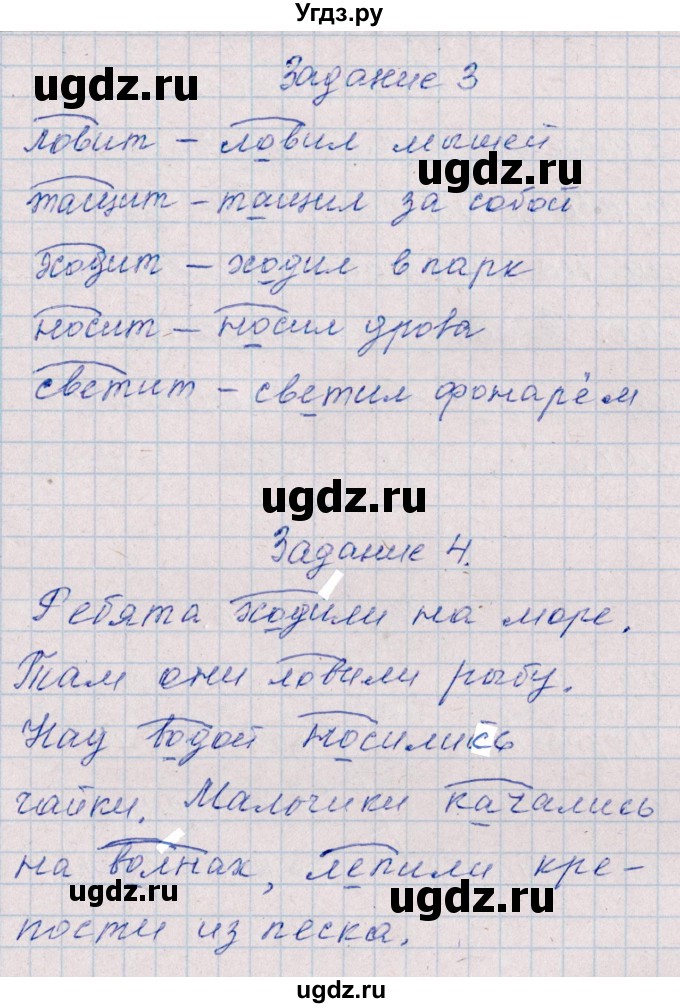 Угдз.ру
Задание 3
ugdz.ru
ловит – ловил мышей
ugdz.ru
тащит – тащил за собой
ходит – ходил в парк
носит – носил дрова
светит – светил фонарём
ugdz.ru
Задание 4.
Ребята ходили на море.
Там они ловили рыбу.
Над водой носились
чайки. Мальчики качались
на волнах, лепили кре-
ugdz.ru
ugdz.ru
пости из песка.
ugdz.ru